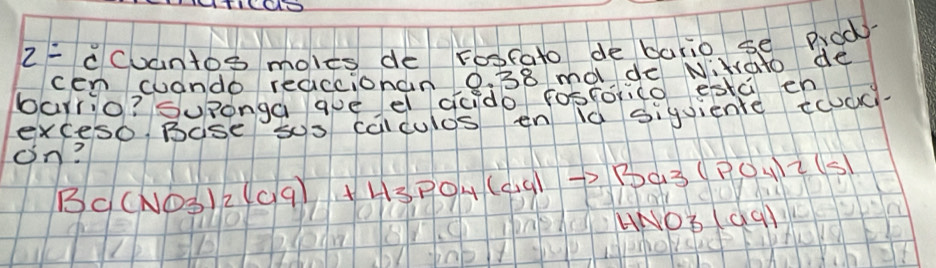 2= ¿Cuantos moles de Fosfato de bario se produ-
cen cuando reaccionan 0.38 mol de Nitrato de
barrio? Suponga que el acido fosfórico está en
exceso. Base sus cálculos en la siguiente ecuaci-
ón?
Ba(NO3)2(aq) + H3PO4(aq) → Ba3(PO4)2(s)
HNO3(aq)